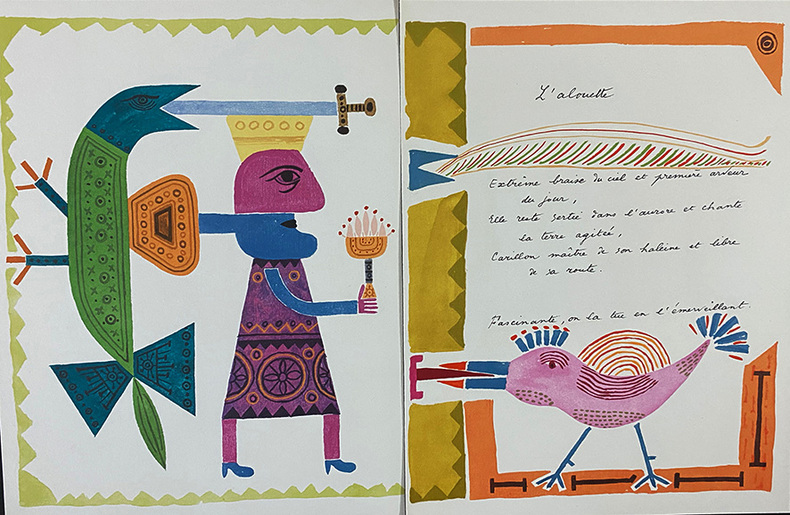 L'alouette
Extrême braise du ciel et première ardeur
du jour,
Elle reste sertie dans l'aurore et chante
la terre agitée,
Carillon maître de son haleine et libre
de sa route.
Fascinante, on la tue en l'émerveillant.